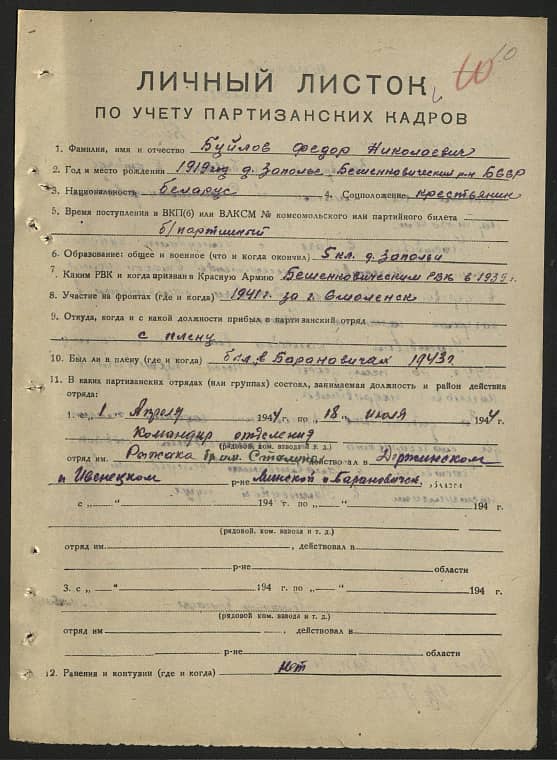 10
ЛИЧНЫЙ ЛИСТОК
ПО УЧЕТУ ПАРТИЗАНСКИХ КАДРОВ
1. Фамилия, имя и отчество Буйлов Федор Николаевич
2. Год и место рождения 1919 год д. Заполье Бешенковический р-н БССР
3. Национальность беларус 4. Соцположение крестьянин
5. Время поступления в ВКП(б) или ВЛКСМ № комсомольского или партийного билета
б/партийный
6. Образование: общее и военное (что и когда окончил) 5 кл. д. Заполье
7. Каким РВК и когда призван в Красную Армию Бешенковическим РВК в 1939 г.
8. Участие на фронтах (где и когда) 1941 г. за г. Смоленск
9. Откуда, когда и с какой должности прибыл в партизанский отряд
с плену
10. Был ли в плену (где и когда) был в Барановичах 1943 г
11. В каких партизанских отрядах (или группах) состоял, занимаемая должность и район действия
отряда:
1. с „1 " Апреля 1944 г. по „18 " июля 1944 г.
Командир отделения
(рядовой, ком. взвода и т. д.)
отряд им. Рыжака бр. им. Сталина действовал в Дзержинском
и Ивенецком р-не Минской и Баранович. области
с „ — " 194 г. по „ — " 194 г.
(рядовой, ком. взвода и т. д.)
отряд им. , действовал в
р-не области
3. с „ — " 194 г. по „ — " 194 г.
(рядовой, ком. взвода и т. д.)
отряд им , действовал в
р-не области
12. Ранения и контузии (где и когда) нет